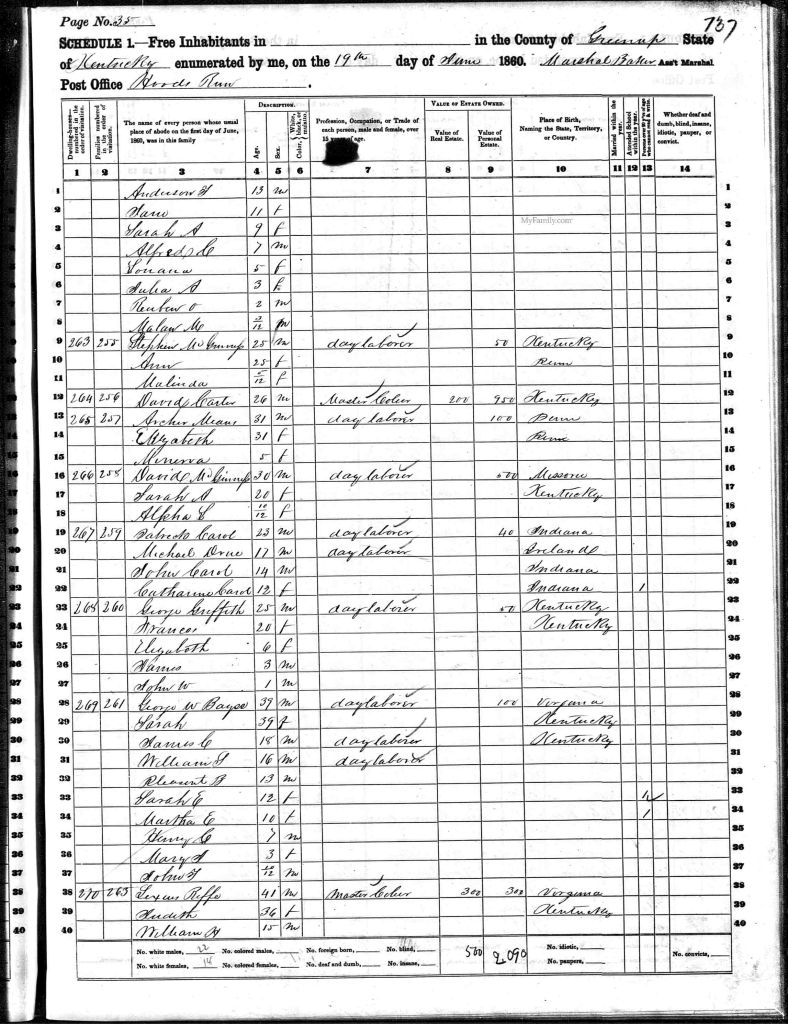 Page No. 35
737
SCHEDULE 1.—Free Inhabitants in in the County of Greenup State
of Kentucky enumerated by me, on the 19th day of June 1860. Marshal Baker Ass't Marshal
Post Office Hoods Run.
Dwelling-houses—numbered in the order of visitation.
Families numbered in the order of visitation.
The name of every person whose usual place of abode on the first day of June, 1860, was in this family
DESCRIPTION.
Age.
Sex.
Color, White, black, or mulatto.
Profession, Occupation, or Trade of each person, male and female, over 15 years of age.
VALUE OF ESTATE OWNED.
Value of Real Estate.
Value of Personal Estate.
Place of Birth, Naming the State, Territory, or Country.
Married within the year.
Attended School within the year.
Persons over 20 y'rs of age who cannot read & write.
Whether deaf and dumb, blind, insane, idiotic, pauper, or convict.
1 2 3 4 5 6 7 8 9 10 11 12 13 14
MyFamily.com
1 Anderson 13 m 1
2 11 f 2
3 Sarah A 9 f 3
4 Alfred C 7 m 4
5 Louana 5 f 5
6 Julia A 3 f 6
7 Reuben O 2 m 7
8 M 3/12 m 8
9 263 255 Stephen McGinnis 25 m day laborer 50 Kentucky 9
10 Ann 25 f Penn 10
11 Malinda 5/12 f 11
12 264 256 David Carter 26 m Master Colier 200 950 Kentucky 12
13 265 257 Archer Means 31 m day laborer 100 Penn 13
14 Elizabeth 31 f Penn 14
15 Minerva 5 f 15
16 266 258 David McGinnis 30 m day laborer 500 Missorie 16
17 Sarah A 20 f Kentucky 17
18 Alpha E 10/12 f 18
19 267 259 Patrick Carol 23 m day laborer 40 Indiana 19
20 Michael 17 m day laborer Ireland 20
21 John Carol 14 m Indiana 21
22 Catharine Carol 12 f Indiana 1 22
23 268 260 George Griffith 25 m day laborer 50 Kentucky 23
24 Frances 20 f Kentucky 24
25 Elizabeth 6 f 25
26 James 3 m 26
27 John W 1 m 27
28 269 261 George W Bayse 39 m day laborer 100 Virgania 28
29 Sarah 39 f Kentucky 29
30 James C 18 m day laborer Kentucky 30
31 William 16 m day laborer 31
32 Pleasent B 13 m 32
33 Sarah E 12 f 1 33
34 Martha E 10 f 1 34
35 Henry C 7 m 35
36 Mary 3 f 36
37 John 10/12 m 37
38 270 263 Riffe 41 m Master Colier 300 300 Virgania 38
39 Judith 36 f Kentucky 39
40 William H 15 m 40
No. white males, 22 No. colored males, No. foreign born, No. blind, 500 2090 No. idiotic, No. convicts,
No. white females, 18 No. colored females, No. deaf and dumb, No. insane, No. paupers,